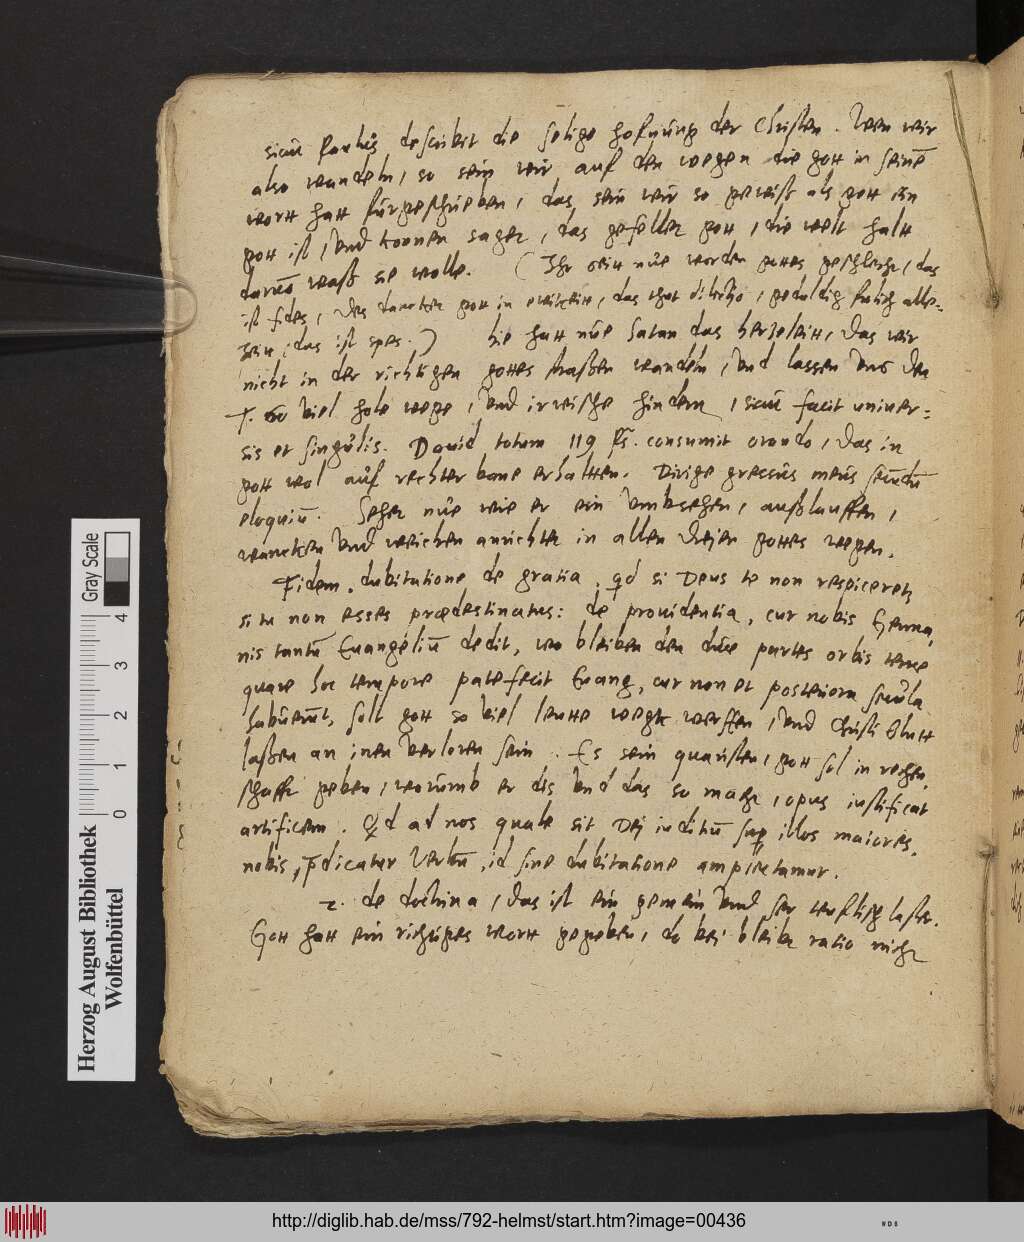 sicut Paulus describit die selige hofnung der Christen. Wen wir
also wandeln, so sein wir auf den wegen die gott in seinē
wort hatt fürgeschrieben, das sein wir so gewiß als gott ein
gott ist, vnd konnen sagen, das gefellet gott, die welt halt
waß sie wolle. ( Ihr seitt nue worden gottes geschlecht, das
ist fides, gott in das ist dilectio, geduldig frolich alle-
das ist spes. ) hie hatt nūe Satan das hertzeleitt, das wir
nicht in der richtigen gottes straßen wandeln, vnd lassen vns den
T. so viel hole wege, vnd irrische hindern, sicut facit univer-
sis et singulis. David totum 119 ps. consumit orando, das in
gott wol auf rechter bane erhaltten. Dirige gressus meus secundū
eloquiū. Sehet nūe wie er ein vmbsehen, außlauffen,
wancken vnd weichen anrichtet in allen dreien gottes wegen.
Fidem. dubitatione de gratia. qd si Deus te non respiceret,
si tu non esses prædestinatus: de providentia, cur nobis Germa
nis tantū Euangeliū dedit, wo bleiben den partes orbis terræ
quare hoc tempore patefecit Euang, cur non et posteriora secula
habuerūt, solt gott so viel leutte wegk werffen, vnd Christi Blutt
laßen an inen verloren sein. Es sein gott sol in rechen
schafft geben, worumb er dis vnd das so macht, opus iustificat
artificem. Qd ad nos quale sit Dei iuditiū sup illos maiores.
nobis p̄dicatur Verbū, id sine dubitatione amplectamur.
2. de doctrina, das ist ein gemein vnd ser teuflisch laster.
Gott hatt ein richtiges wort gegeben, do bei bleibt ratio nicht
Herzog August Bibliothek
Wolfenbüttel
Gray Scale
0 1 2 3 4
http://diglib.hab.de/mss/792-helmst/start.htm?image=00436